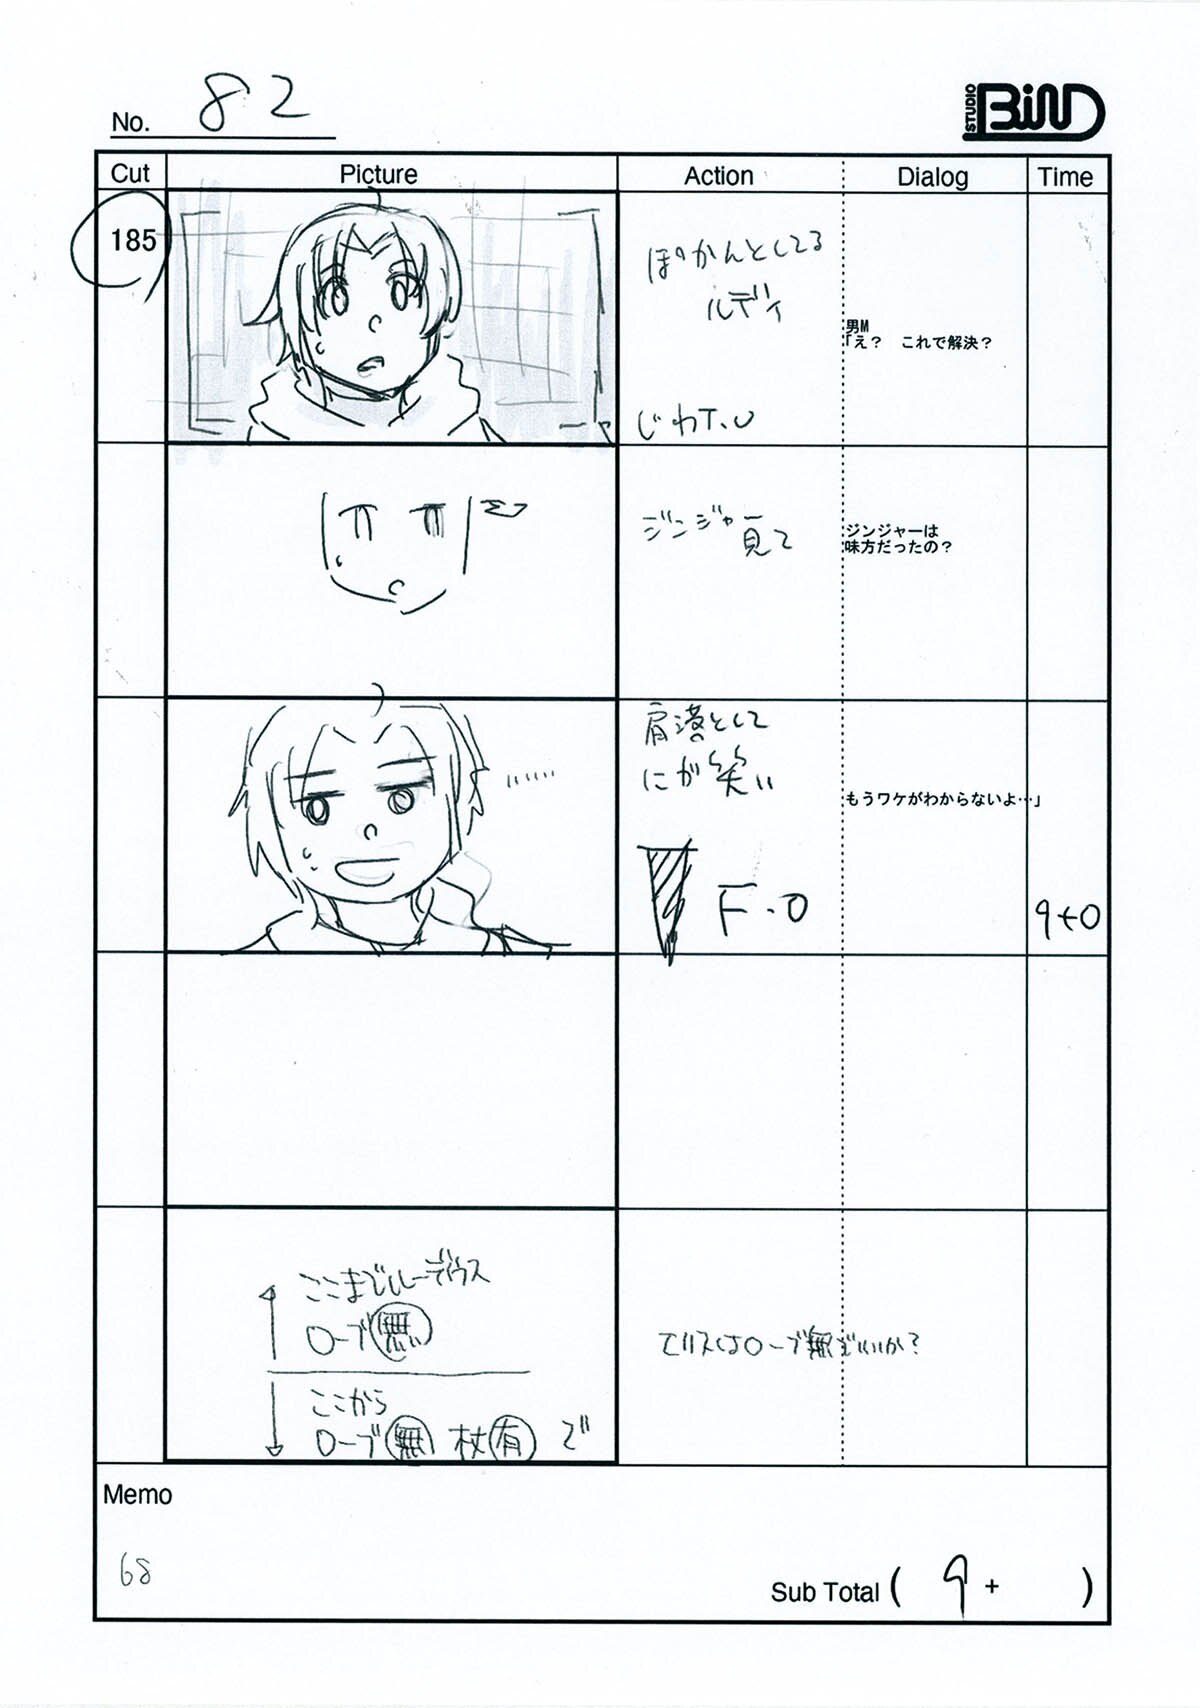 No. 82
STUDIO BiND
Cut Picture Action Dialog Time
185
ぽかんとしてる
ルディ
男M
「え？　これで解決？
じわT.U
ジンジャー
見て
ジンジャーは
味方だったの？
肩落として
にが笑い
もうワケがわからないよ…」
F.O
9+0
ここまでルーデウス
ローブ無
ここから
ローブ無 杖有 で
エリスはローブ無でいいか？
Memo
68
Sub Total ( 9 + )